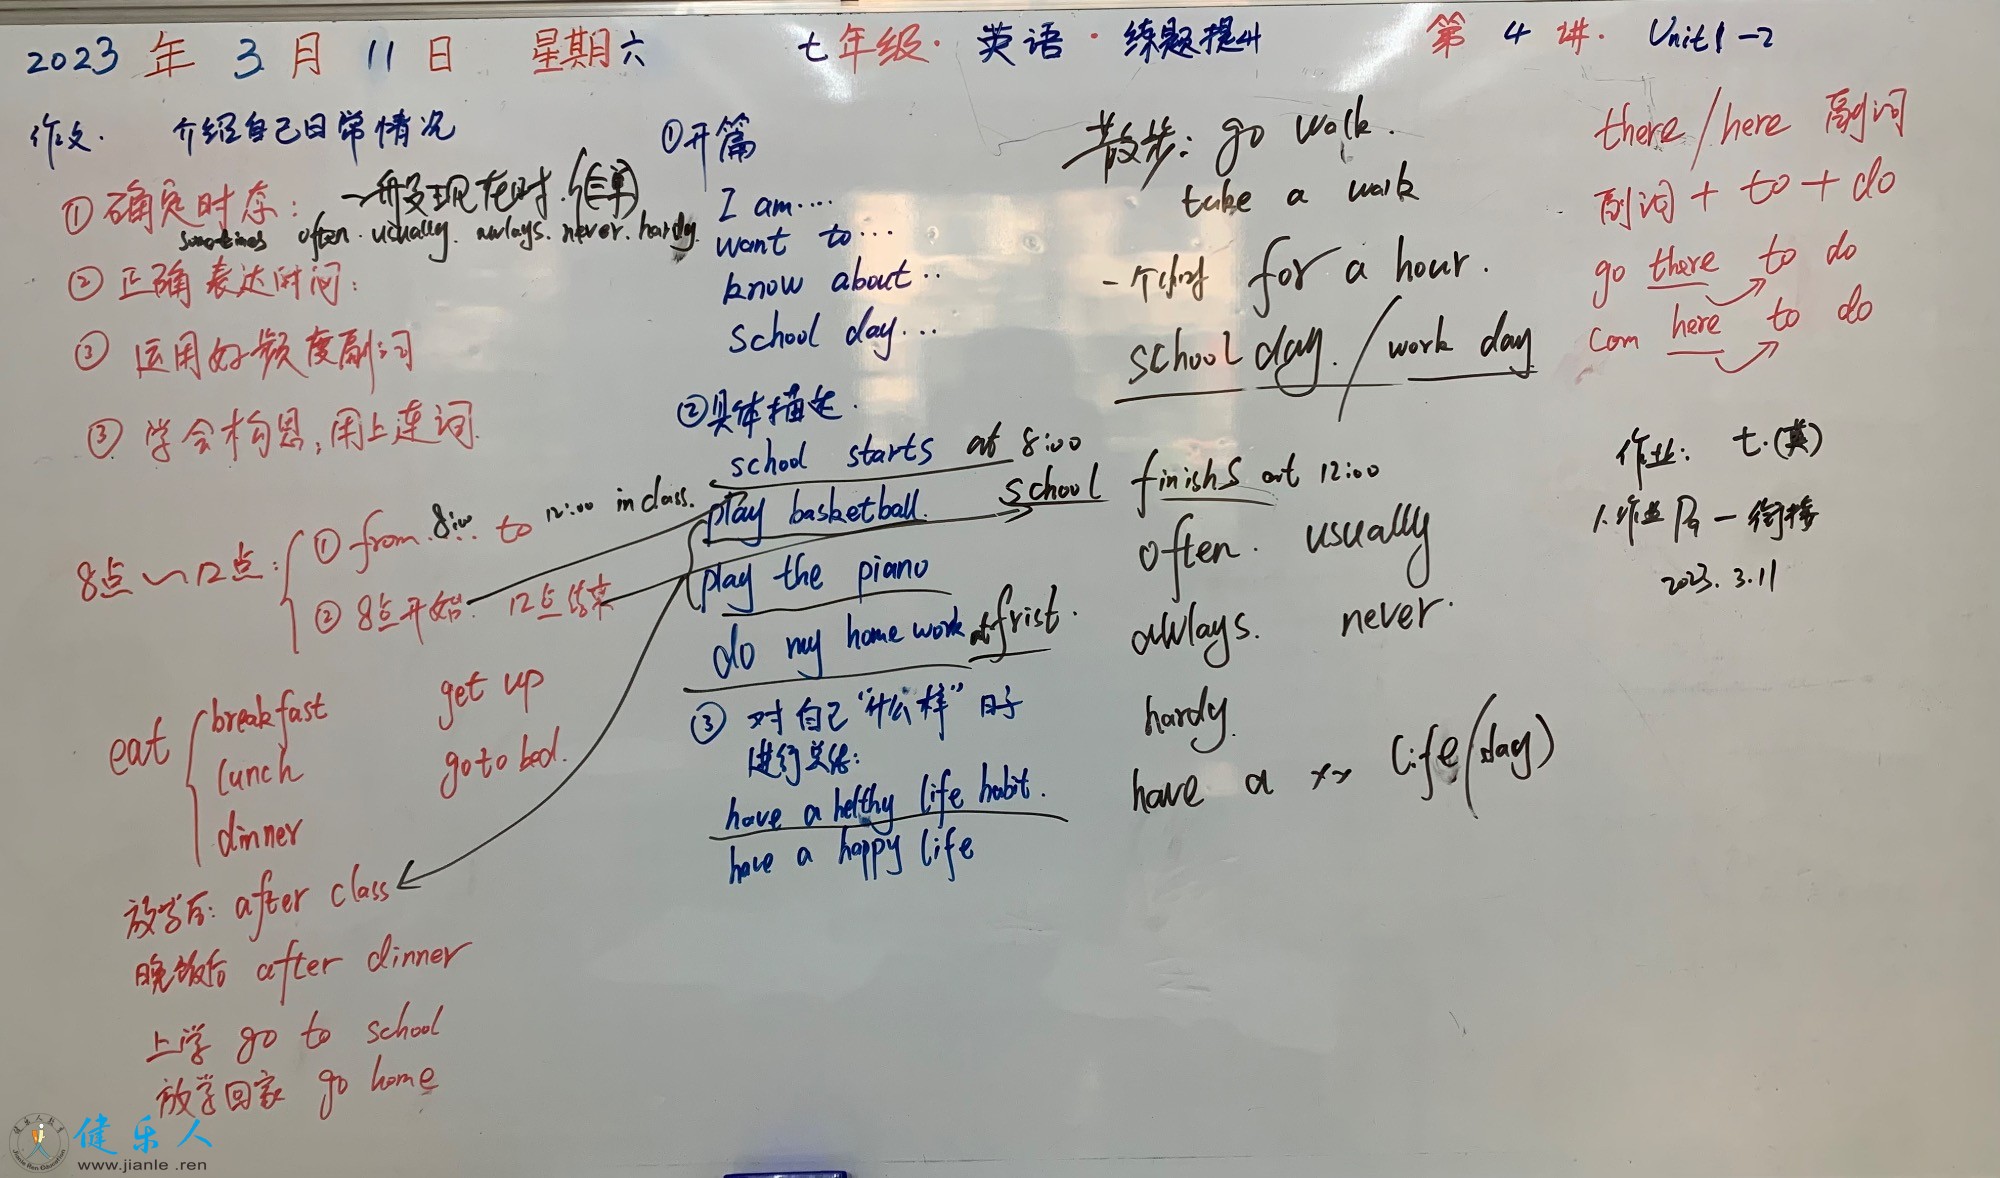 2023年3月11日 星期六 七年级·英语·练题提升 第4讲. Unit1-2
作文. 介绍自己日常情况
①确定时态: 一般现在时.(三单)
sometimes often. usually. awlays. never. hardy.
② 正确表达时间:
③ 运用好频度副词
③ 学会构思,用上连词.
8点~12点: ① from 8:00 to 12:00 in class.
② 8点开始. 12点结束
eat breakfast
lunch
dinner
get up
go to bed.
放学后: after class
晚饭后 after dinner
上学 go to school
放学回家 go home
①开篇
I am....
want to...
know about..
school day...
②具体描述.
school starts at 8:00
play basketball.
school finishs at 12:00
play the piano
do my home work at frist.
③ 对自己"什么样"日子
进行总结:
have a helthy life habit.
have a happy life
散步: go walk.
take a walk
一个小时 for a hour.
school day. / work day
often. usually
awlays. never.
hardy.
have a ×× life(day)
there/here 副词
副词 + to + do
go there to do
com here to do
作业: 七.(英)
1.作业 P9 一衔接
2023.3.11
健乐人
www.jianle.ren